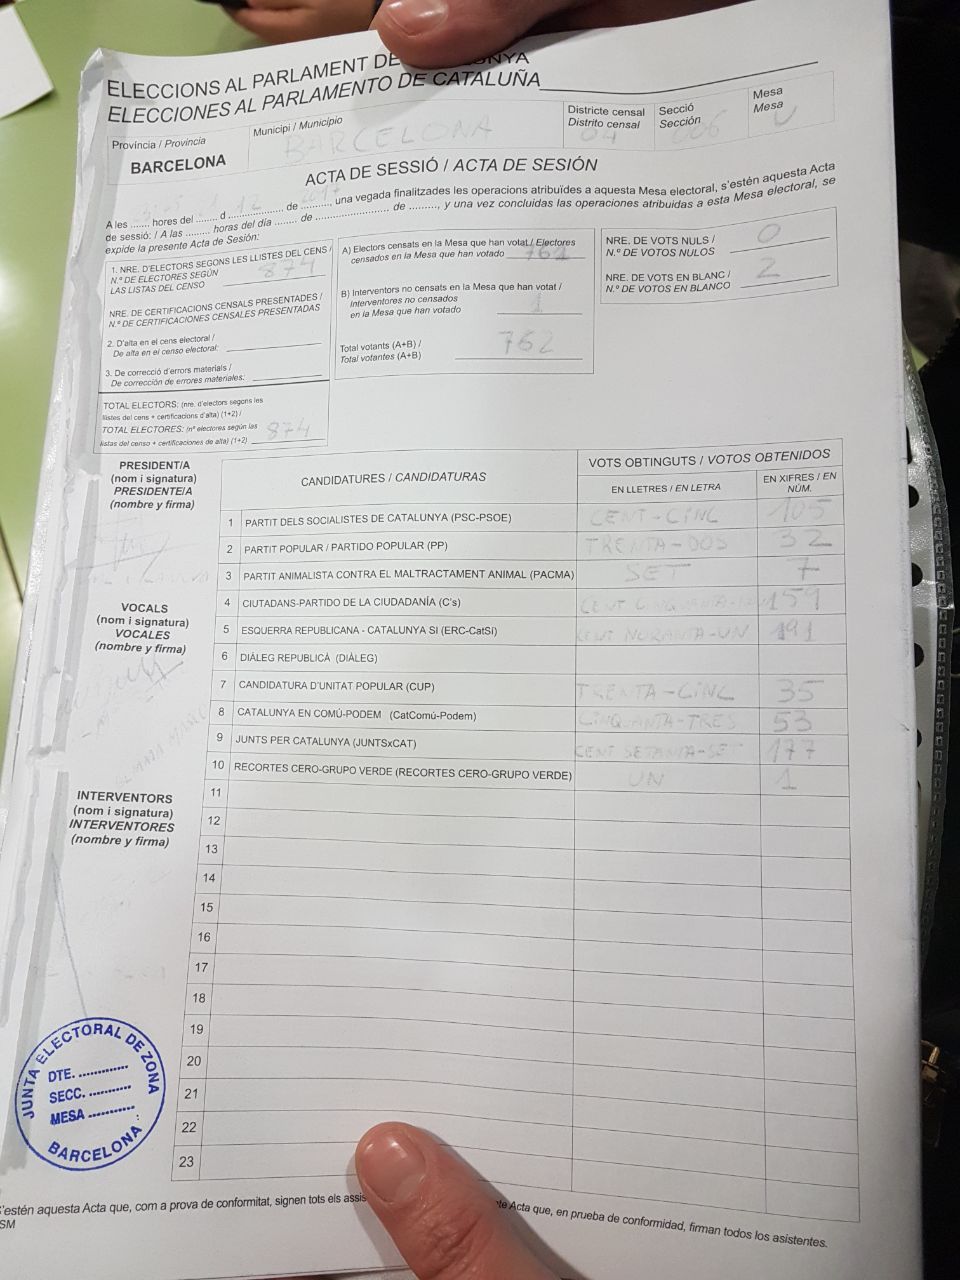 ELECCIONS AL PARLAMENT DE
ELECCIONES AL PARLAMENTO DE CATALUÑA
Província / Provincia
BARCELONA
Municipi / Municipio
BARCELONA
Districte censal
Distrito censal
04
Secció
Sección
006
Mesa
Mesa
U
ACTA DE SESSIÓ / ACTA DE SESIÓN
A les ....... hores del ....... d .................. de .........., una vegada finalitzades les operacions atribuïdes a aquesta Mesa electoral, s'estén aquesta Acta
de sessió: / A las ......... horas del día ....... de ........................ de ........., y una vez concluidas las operaciones atribuidas a esta Mesa electoral, se
expide la presente Acta de Sesión:
1. NRE. D'ELECTORS SEGONS LES LLISTES DEL CENS /
N.º DE ELECTORES SEGÚN
LAS LISTAS DEL CENSO
874
NRE. DE CERTIFICACIONS CENSALS PRESENTADES /
N.º DE CERTIFICACIONES CENSALES PRESENTADAS
2. D'alta en el cens electoral /
De alta en el censo electoral:
3. De correcció d'errors materials /
De corrección de errores materiales:
TOTAL ELECTORS: (nre. d'electors segons les
llistes del cens + certificacions d'alta) (1+2) /
TOTAL ELECTORES: (nº electores según las
listas del censo + certificaciones de alta) (1+2)
874
A) Electors censats en la Mesa que han votat / Electores
censados en la Mesa que han votado 761
B) Interventors no censats en la Mesa que han votat /
Interventores no censados
en la Mesa que han votado
1
Total votants (A+B) /
Total votantes (A+B)
762
NRE. DE VOTS NULS /
N.º DE VOTOS NULOS
0
NRE. DE VOTS EN BLANC /
N.º DE VOTOS EN BLANCO
2
PRESIDENT/A
(nom i signatura)
PRESIDENTE/A
(nombre y firma)
VOCALS
(nom i signatura)
VOCALES
(nombre y firma)
INTERVENTORS
(nom i signatura)
INTERVENTORES
(nombre y firma)
CANDIDATURES / CANDIDATURAS
VOTS OBTINGUTS / VOTOS OBTENIDOS
EN LLETRES / EN LETRA
EN XIFRES / EN
NÚM.
1 PARTIT DELS SOCIALISTES DE CATALUNYA (PSC-PSOE) CENT-CINC 105
2 PARTIT POPULAR / PARTIDO POPULAR (PP) TRENTA-DOS 32
3 PARTIT ANIMALISTA CONTRA EL MALTRACTAMENT ANIMAL (PACMA) SET 7
4 CIUTADANS-PARTIDO DE LA CIUDADANÍA (C's) CENT CINQUANTA-NOU 159
5 ESQUERRA REPUBLICANA - CATALUNYA SI (ERC-CatSí) CENT NORANTA-UN 191
6 DIÀLEG REPUBLICÀ (DIÀLEG)
7 CANDIDATURA D'UNITAT POPULAR (CUP) TRENTA-CINC 35
8 CATALUNYA EN COMÚ-PODEM (CatComú-Podem) CINQUANTA-TRES 53
9 JUNTS PER CATALUNYA (JUNTSxCAT) CENT SETANTA-SET 177
10 RECORTES CERO-GRUPO VERDE (RECORTES CERO-GRUPO VERDE) UN 1
11
12
13
14
15
16
17
18
19
20
21
22
23
JUNTA ELECTORAL DE ZONA
DTE. .............
SECC. ...........
MESA ...........
BARCELONA
S'estén aquesta Acta que, com a prova de conformitat, signen tots els
Acta que, en prueba de conformidad, firman todos los asistentes.